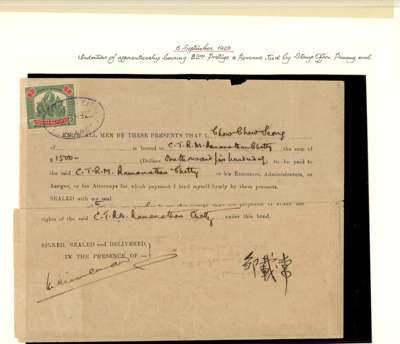 5 September 1903
Indenture of apprenticeship bearing Postage & Revenue tied by Stamp Office Penang oval
KNOW ALL MEN BY THESE PRESENTS THAT I, Chow Chew Seong
of is bound to C.T.R.M. Ramanathan Chetty the sum of
$1500- (Dollars One thousand five hundred only to be paid to
the said C.T.R.M. Ramanathan Chetty or his Executors, Administrators, or
Assigns, or his Attorneys for which payment I bind myself firmly by these presents.
SEALED with my seal
rights of the said C.T.R.M. Ramanathan Chetty under this bond.
SIGNED, SEALED and DELIVERED,
IN THE PRESENCE OF—
邱戴常